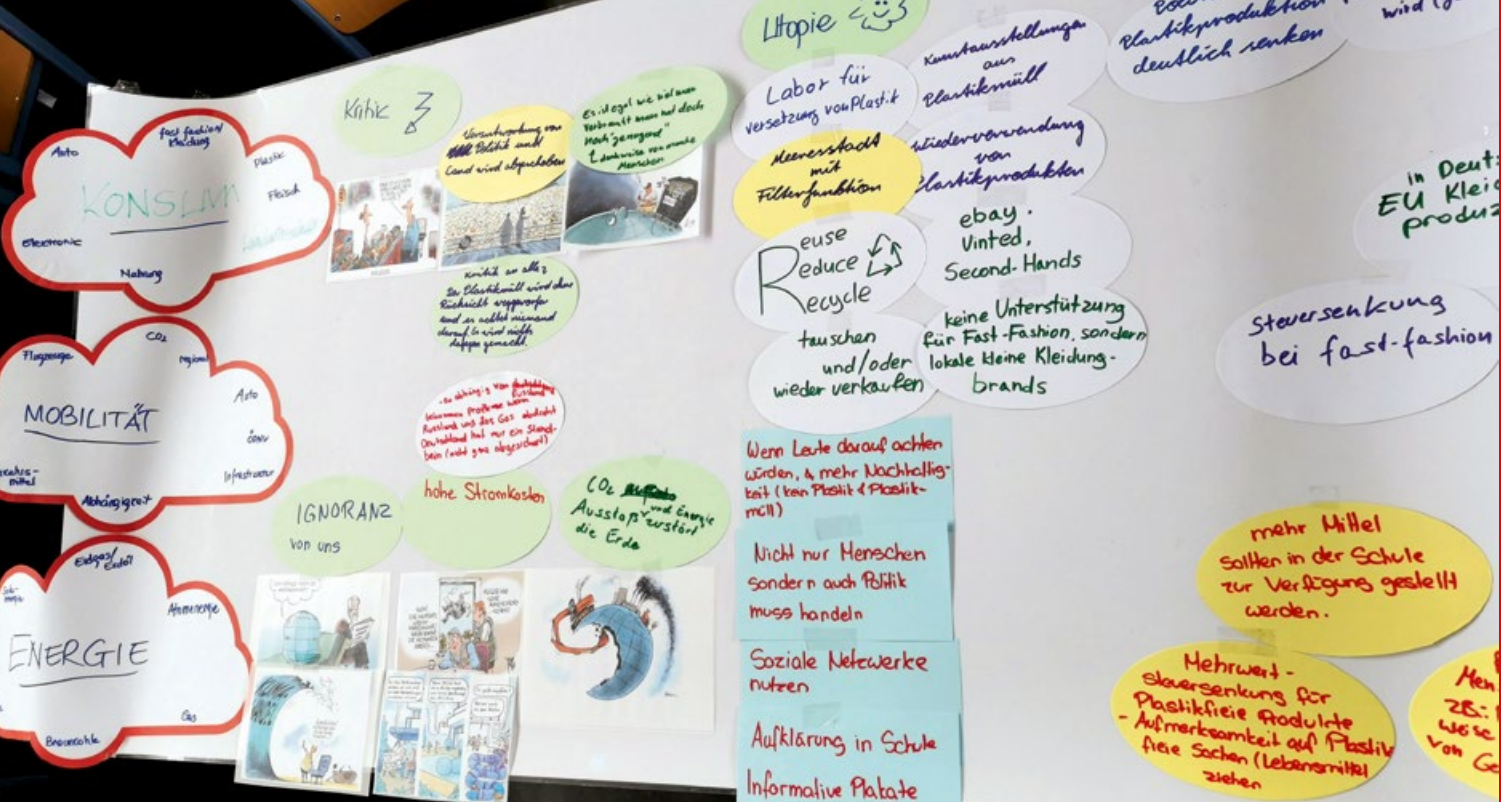 KONSUM
Auto
fast fashion/
Kleidung
Plastic
Fleisch
Electronic
Nahrung
MOBILITÄT
Flugzeuge
CO2
regional
Auto
ÖPNV
Infrastructur
Abhängigkeit
mittel
ENERGIE
Erdgas/
Erdöl
Atomenergie
Gas
Braunkohle
Kritik
Verantwortung von
Politik und
Land wird abgeschoben
Es ist egal wie viel man
verbraucht man hat doch
noch "genügend"
denkweise von manche
Menschen
Kritik an alle?
Der Plastikmüll wird ohne
Rücksicht weggeworfen
und es achtet niemand
darauf. Es wird nichts
dagegen gemacht.
-zu abhängig von
Russland
bekommen Probleme wenn
Russland uns das Gas abdreht
Deutschland hat nur ein Stand-
bein (nicht gut abgesichert)
IGNORANZ
von uns
hohe Stromkosten
CO2
und Energie
Ausstoß zustört
die Erde
Utopie
Labor für
versetzung von Plastik
Meeresstadt
mit
Filterfunktion
Reuse
Reduce
Recycle
tauschen
und/oder
wieder verkaufen
Kunstausstellungen
aus
Plastikmüll
Wiederverwendung
von
Plastikprodukten
ebay.
Vinted,
Second-Hands
keine Unterstützung
für Fast-Fashion, sondern
lokale kleine Kleidung-
brands
Plastikproduktion
deutlich senken
wird
in Deut
EU Kleid
produz
Steuersenkung
bei fast-fashion
Wenn Leute darauf achten
würden, mehr Nachhaltig-
keit (kein Plastik & Plastik-
müll)
Nicht nur Menschen
sondern auch Politik
muss handeln
Soziale Netzwerke
nutzen
Aufklärung in Schule
Informative Plakate
mehr Mittel
sollten in der Schule
zur Verfügung gestellt
werden.
Mehrwert-
steuersenkung für
Plastikfreie Produkte
- Aufmerksamkeit auf Plastik
freie Sachen (Lebensmittel
ziehen
Men
ZB:
weise
von Ge